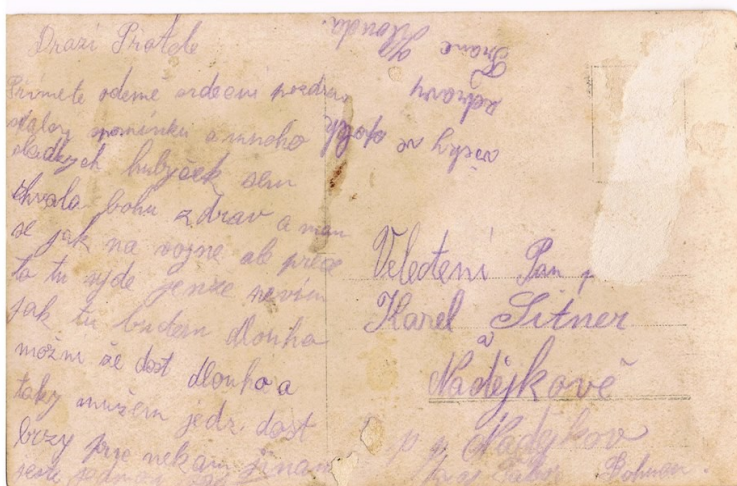 Drazí Prátele
Prímete odemě srdečni pozdrav
malou pomínku a mnoho
sladkych hubyček sem
chvala bohu zdrav a mam
se jak na vojne ale prece
to tu ujde jenže nevim
jak tu budem dlouho
možni še dost dlouho a
taky mužem jedr. dost
brzy pric nekam jinam
jeste jednou
všechy ve spolek
zdravy
Franc Klouda.
Veledení Pan
Karel Sitner
v
Nadějkově
p p Nadějkov
Tábor Bohmen.